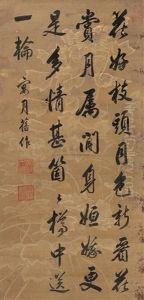 花好枝頭月色新看花
賞月屬閒身姮娥更
是多情甚箇箇樽中送
一輪
賞月舊作